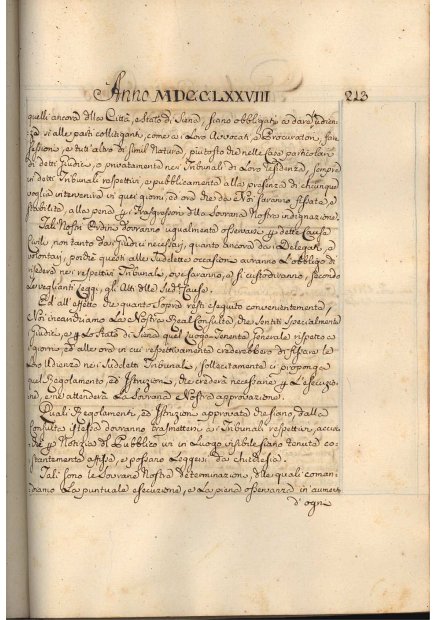 Anno MDCCLXXVIII 213
quelli ancora della Città, e Stato di Siena, siano obbligati a dare udien-
za sì alle parti collitiganti, come a i Loro Avvocati, e Procuratori, far
sessioni, e tutt'altro di simil Natura, piuttosto che nelle Case particolari
di detti Giudici, e privatamente nei Tribunali di Loro residenza, sempre
in detti Tribunali respettivi, e pubblicamente alla presenza di chiunque
voglia intervenirvi in quei giorni, ed ore che da Noi saranno fissate, e
stabilite, alla pena per i Trasgressori della Sovrana Nostra indignazione.
Tali Nostri Ordini dovranno ugualmente osservarsi per dette Cause
Civili, non tanto dai Giudici necessarj, quanto ancora dai Delegati, e
volontarj, poichè questi alle suddette occasioni avranno l'obbligo di
risedere nei respettivi Tribunali, ove saranno, e si custodiranno, secondo
le veglianti Leggi, gli Atti delle Sudd.e Cause.
Ed all'effetto che quanto sopra resti eseguito convenientemente,
Noi incarichiamo la Nostra Real Consulta, che sentiti specialmente
i Giudici, e per lo Stato di Siena quel Luogo Tenente Generale rispetto a
i giorni, ed alle ore in cui respettivamente crederebbero di fissare le
Loro Udienze nei Suddetti Tribunali, sollecitamente ci proponga
quel Regolamento, ed Istruzione, che crederà necessaria per l'esecuzio-
ne, e ne attenderà la Sovrana Nostra approvazione.
Quali Regolamenti, ed Istruzioni approvate che siano, dalla
Consulta stessa dovranno trasmettersi ai Tribunali respettivi, acciò-
chè per Notizia del Pubblico in un Luogo visibile siano tenute co-
stantemente affisse, e possano leggersi da chicchesia.
Tali sono le Sovrane Nostre determinazioni, delle quali coman-
diamo la puntuale esecuzione, e la piena osservanza in
d'ogni